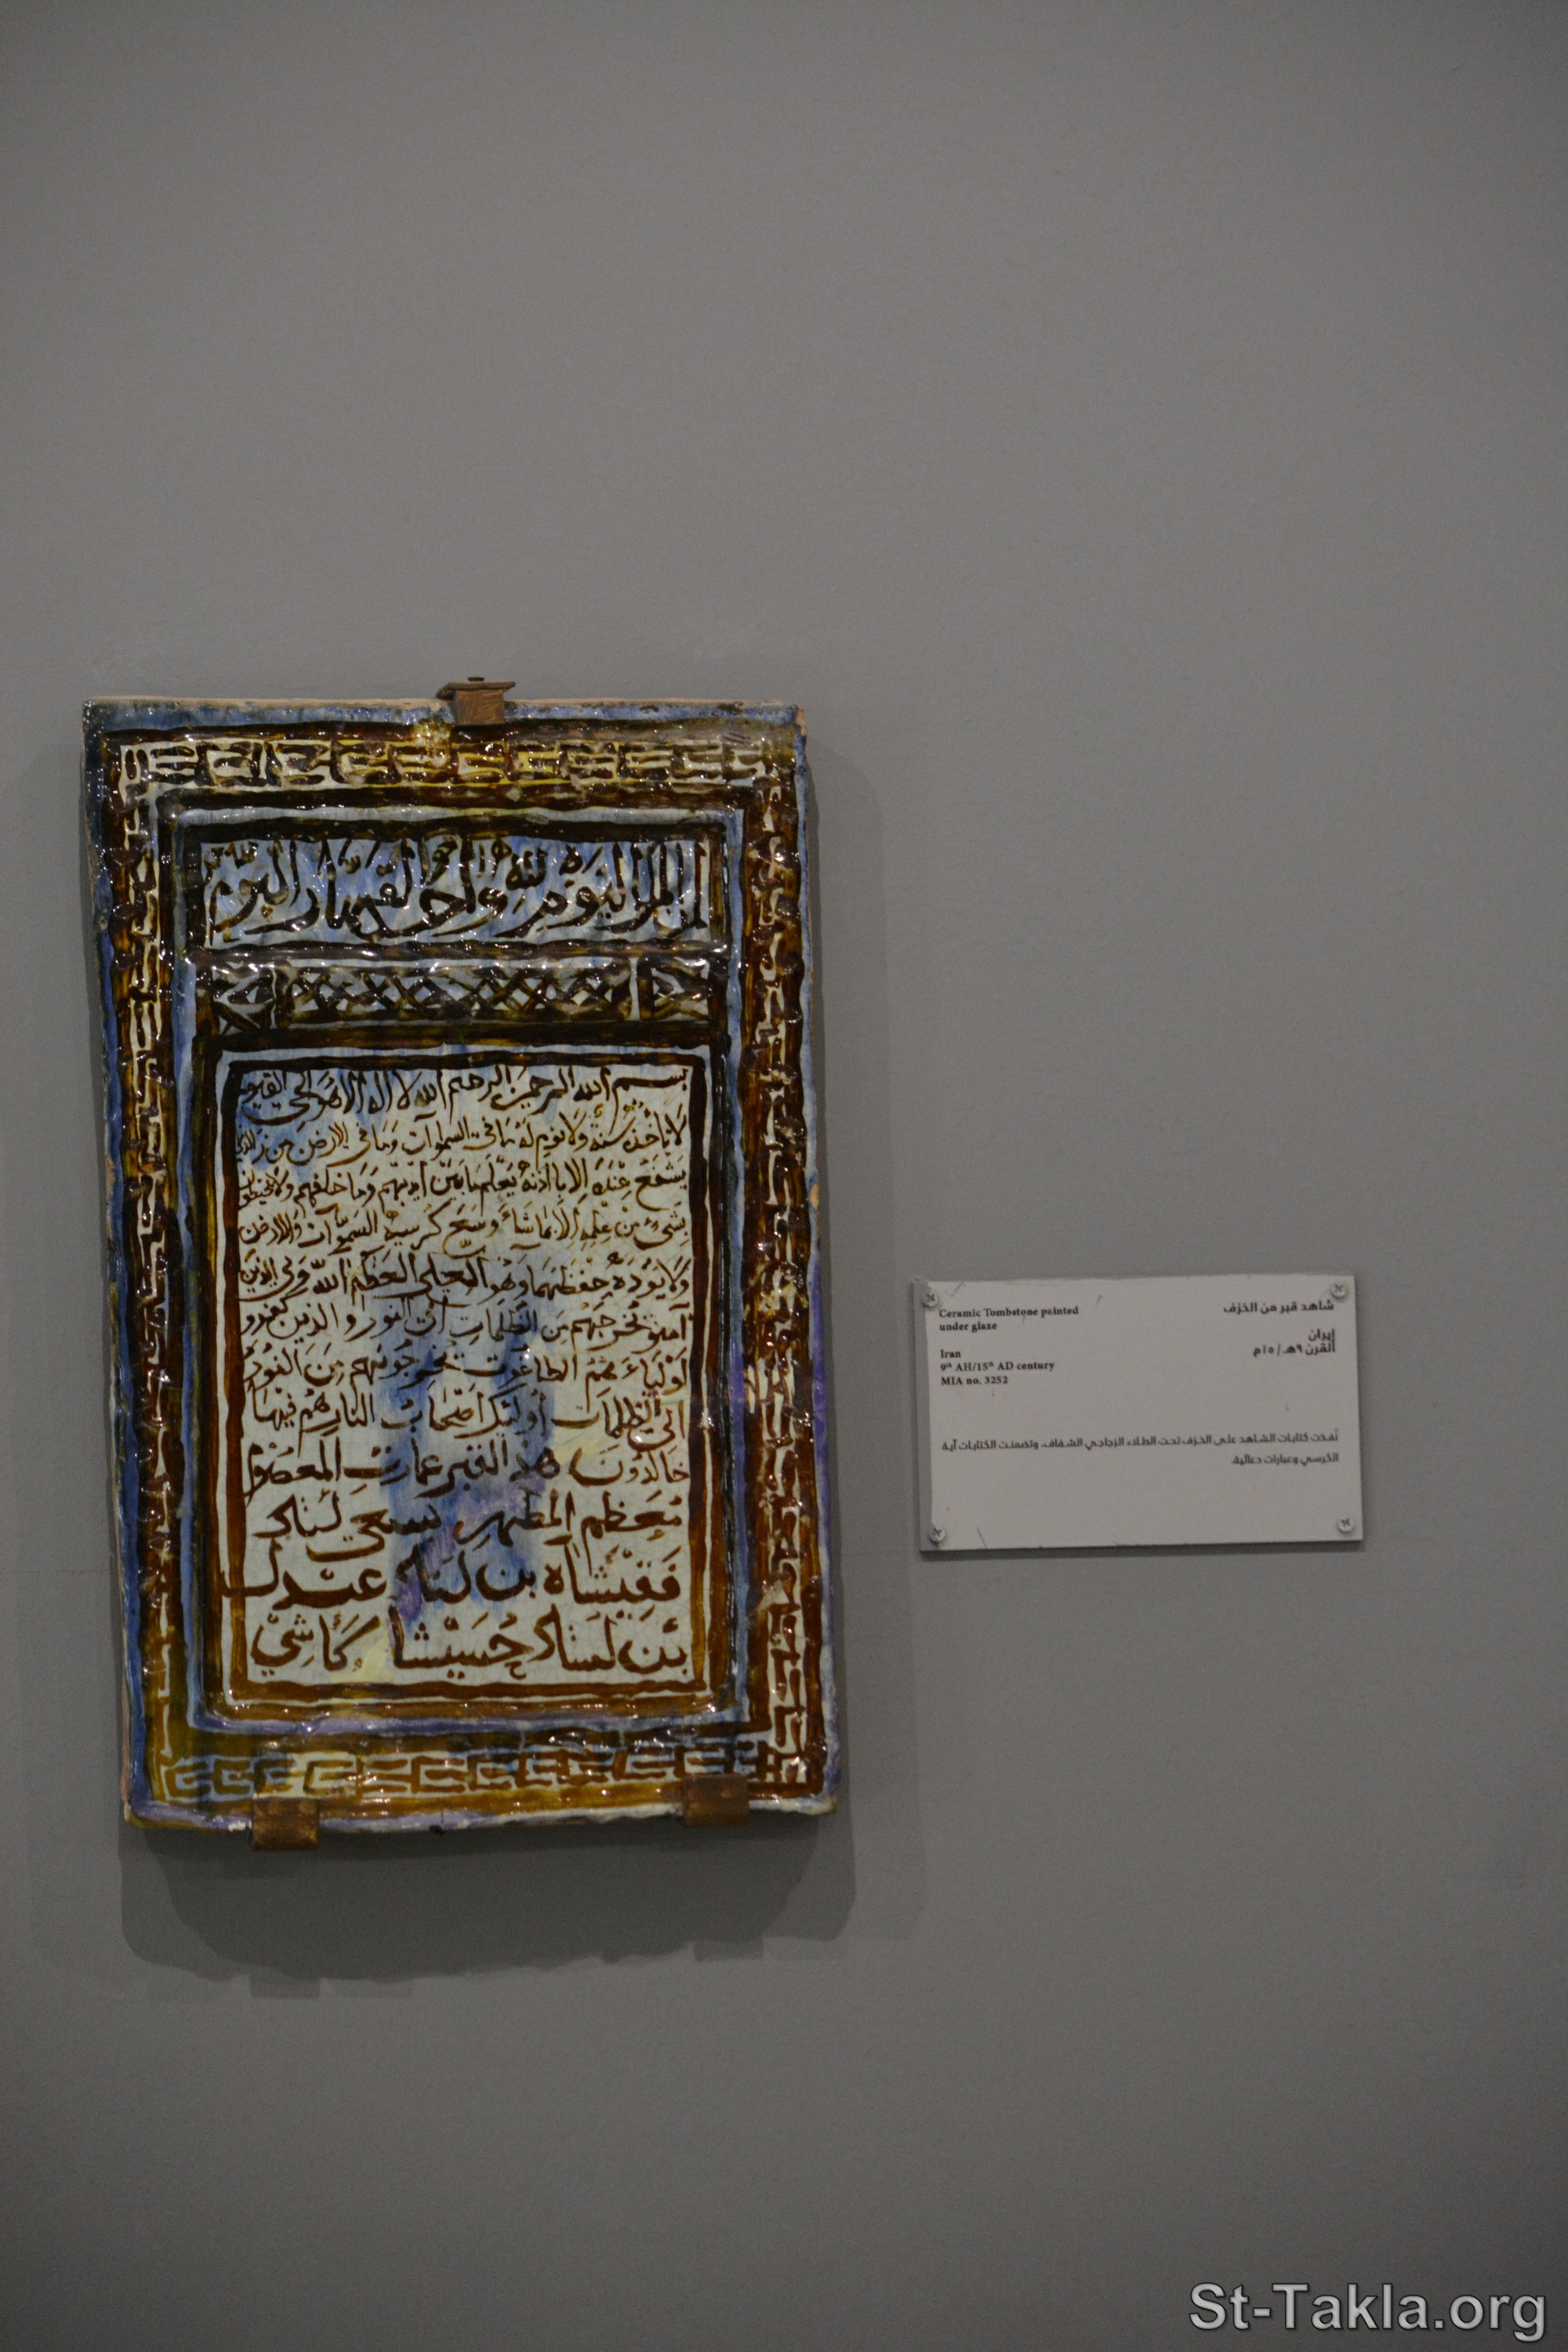 لمن الملك اليوم لله الواحد القهار اليوم
بسم الله الرحمن الرحيم الله لا اله الا هو الحي القيوم
لا تأخذه سنة ولا نوم له ما في السموات وما في الارض من ذا الذي
يشفع عنده إلا بأذنه يعلم ما بين أيديهم وما خلفهم ولا يحيطون
بشئ من علمه إلا بما شاء وسع كرسيه السموات والارض
ولا يؤده حفظهما وهو العلي العظيم الله ولي الذين
آمنو يخرجهم من الظلمات الى النور والذين كفرو
أولياءهم الطاغوت يخرجونهم من النور
الى الظلمات أولئك أصحاب النار هم فيها
خالدون هذ القبر عمارت
معظم المطهر بسعي
بن
كاشي
Ceramic Tombstone painted
under glaze
Iran
9th AH/15th AD century
MIA no. 3252
شاهد قبر من الخزف
إيران
القرن ٩هـ/١٥م
نُفذت كتابات الشاهد على الخزف تحت الطلاء الزجاجي الشفاف، وتضمنت الكتابات آية
الكرسي وعبارات دعائية.
St-Takla.org